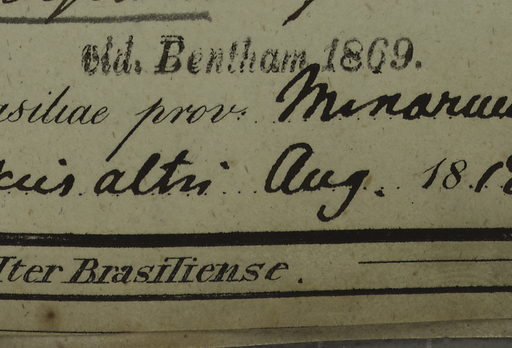 vid. Bentham 1869.
asiliae prov. Minarum
altis Aug. 18.18
Iter Brasiliense.